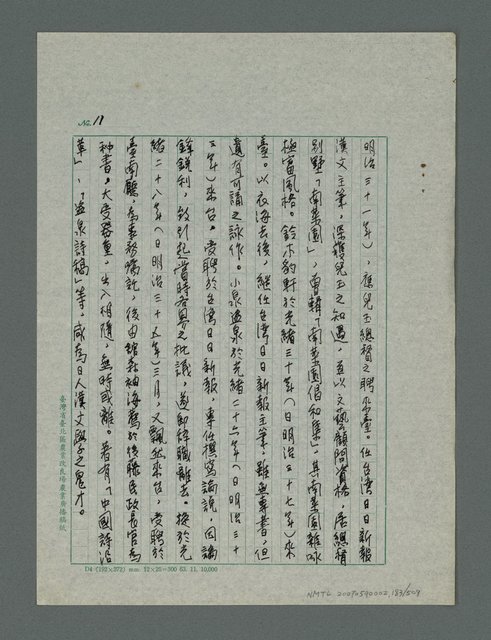 No. 11
明治三十一年),應兒玉總督之聘來臺。任台湾日日新報
漢文主筆,深獲兒玉之知遇,並以文藝顧問資格,居總督
別墅「南菜園」,曾輯「南菜園倡和集」,其南菜園雜咏
極富風格。鈴木豹軒於光緒三十年(日明治三十七年)來
臺。以衣海去後,継任台湾日日新報主筆,雖無專書,但
遺有可誦之詠作。小泉盗泉於光緒二十六年(日明治三十
三年)來台。受聘於台湾日日新報,專任撰寫論說,因論
鋒銳利,致引起當時各界之批議,遂即辞職離去。旋於光
緒二十八年(日明治三十五年)三月,又飄然來台,受聘於
臺南廳,為事務囑託,後由舘森袖海薦於後藤民政長官為
秘書,大受器重,出入相隨,無時或離。著有「中國詩沿
革」、「盗泉詩稿」等,咸為日人漢文學之鬼才。
臺灣省臺北區農業改良場農業廣播稿紙
D4 (192×272) mm 12×25=300 63. 11. 10,000
NMTL 20090590002, 183/509